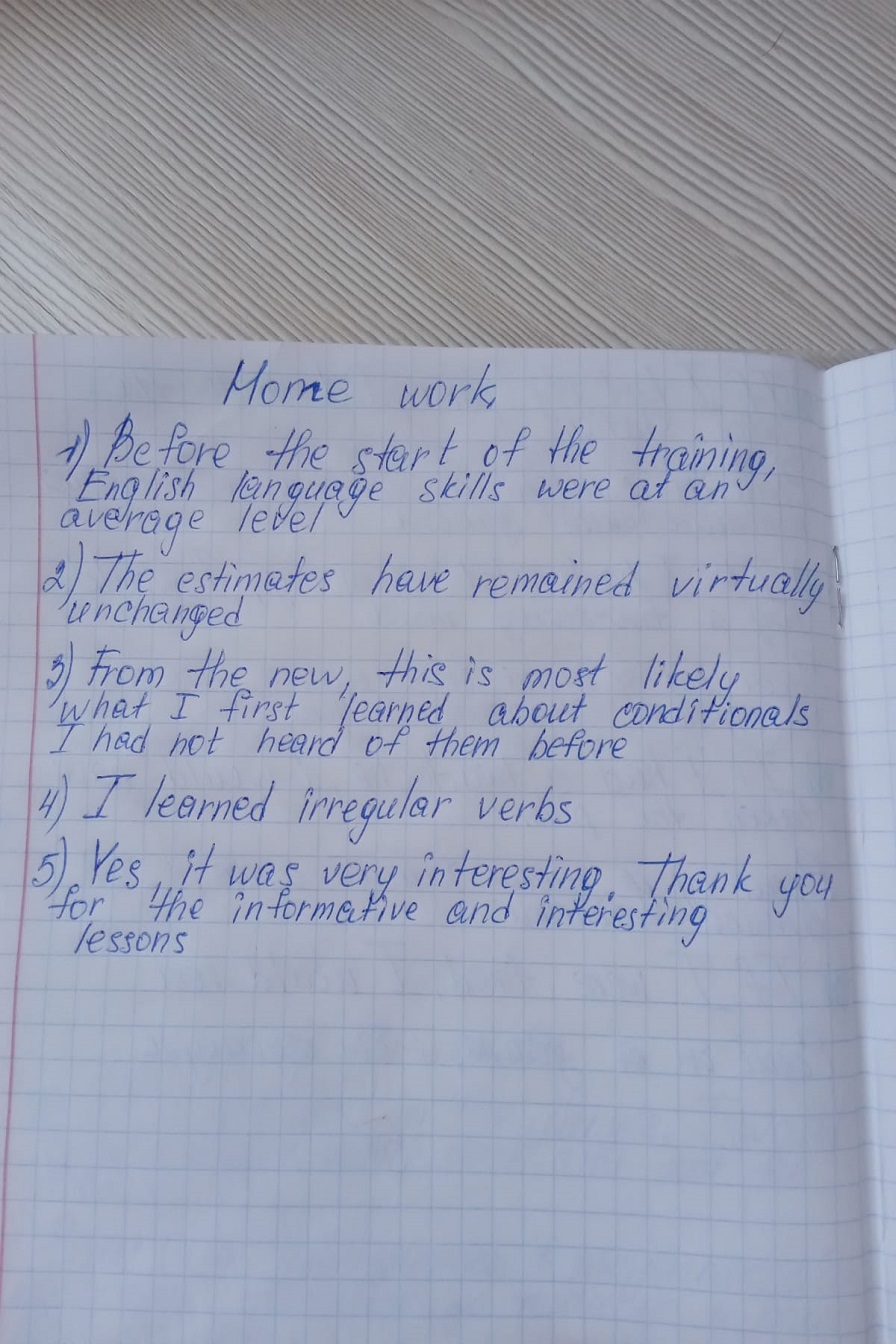 Home work
1) Before the start of the training,
English language skills were at an
average level
2) The estimates have remained virtually
unchanged
3) From the new, this is most likely
what I first learned about conditionals
I had not heard of them before
4) I learned irregular verbs
5) Yes, it was very interesting. Thank you
for the informative and interesting
lessons